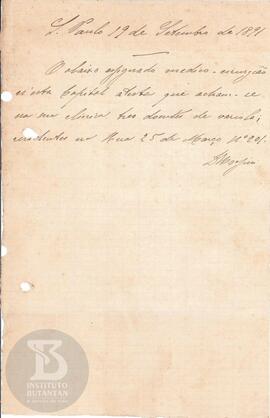 S. Paulo 19 de Setembro de 1891
O abaixo assignado medico-cirurgião
n'esta Capital attesta que acham-se
na sua clinica tres doentes de variola,
residentes na Rua 25 de Março Nº 201.
INSTITUTO
BUTANTAN